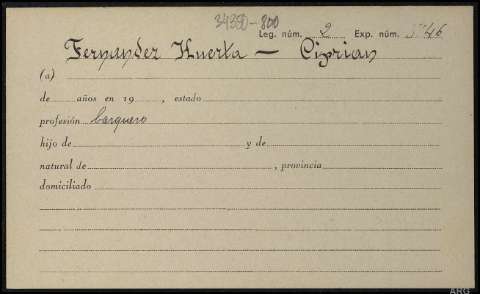 34380-800
Leg. núm. 2 Exp. núm. 46
Fernandez Huerta — Ciprian
(a)
de años en 19 , estado
profesión barquero
hijo de y de
natural de , provincia
domiciliado
ARG